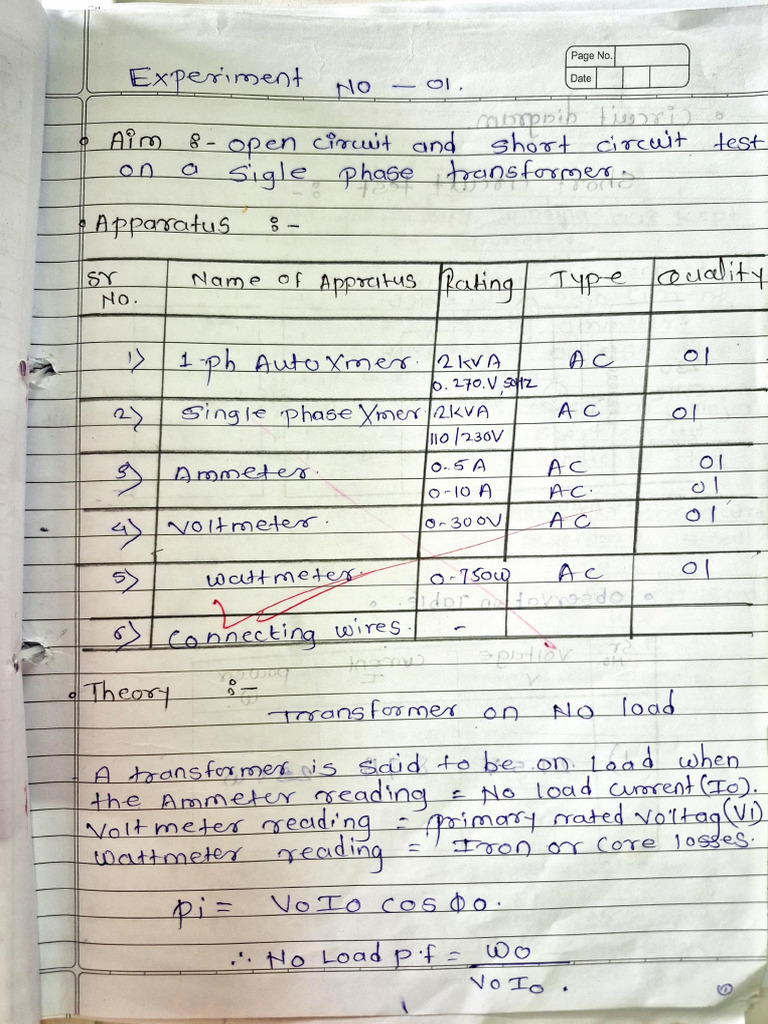 Page No.
Date
Experiment NO - 01.
Aim :- open circuit and short circuit test
on a sigle phase transformer.
Apparatus :-
Sr No. Name of Appratus Rating Type Quality
1) 1-ph Auto Xmer. 2 KVA AC 01
0. 270.V, 50Hz
2) Single phase Xmer 2KVA AC 01
110/230V
3) Ammeter. 0-5A AC 01
0-10 A AC. 01
4) Voltmeter. 0-300V AC 01
5) Wattmeter. 0-750W AC 01
6) Connecting wires. -
Theory :-
Transformer on No load
A transformer is said to be on load when
the Ammeter reading = No load current (Io).
Voltmeter reading = primary rated voltag (V1)
Wattmeter reading = Iron or core losses.
pi = VoIo cos ϕo.
∴ No Load p.f = Wo
VoIo.
1